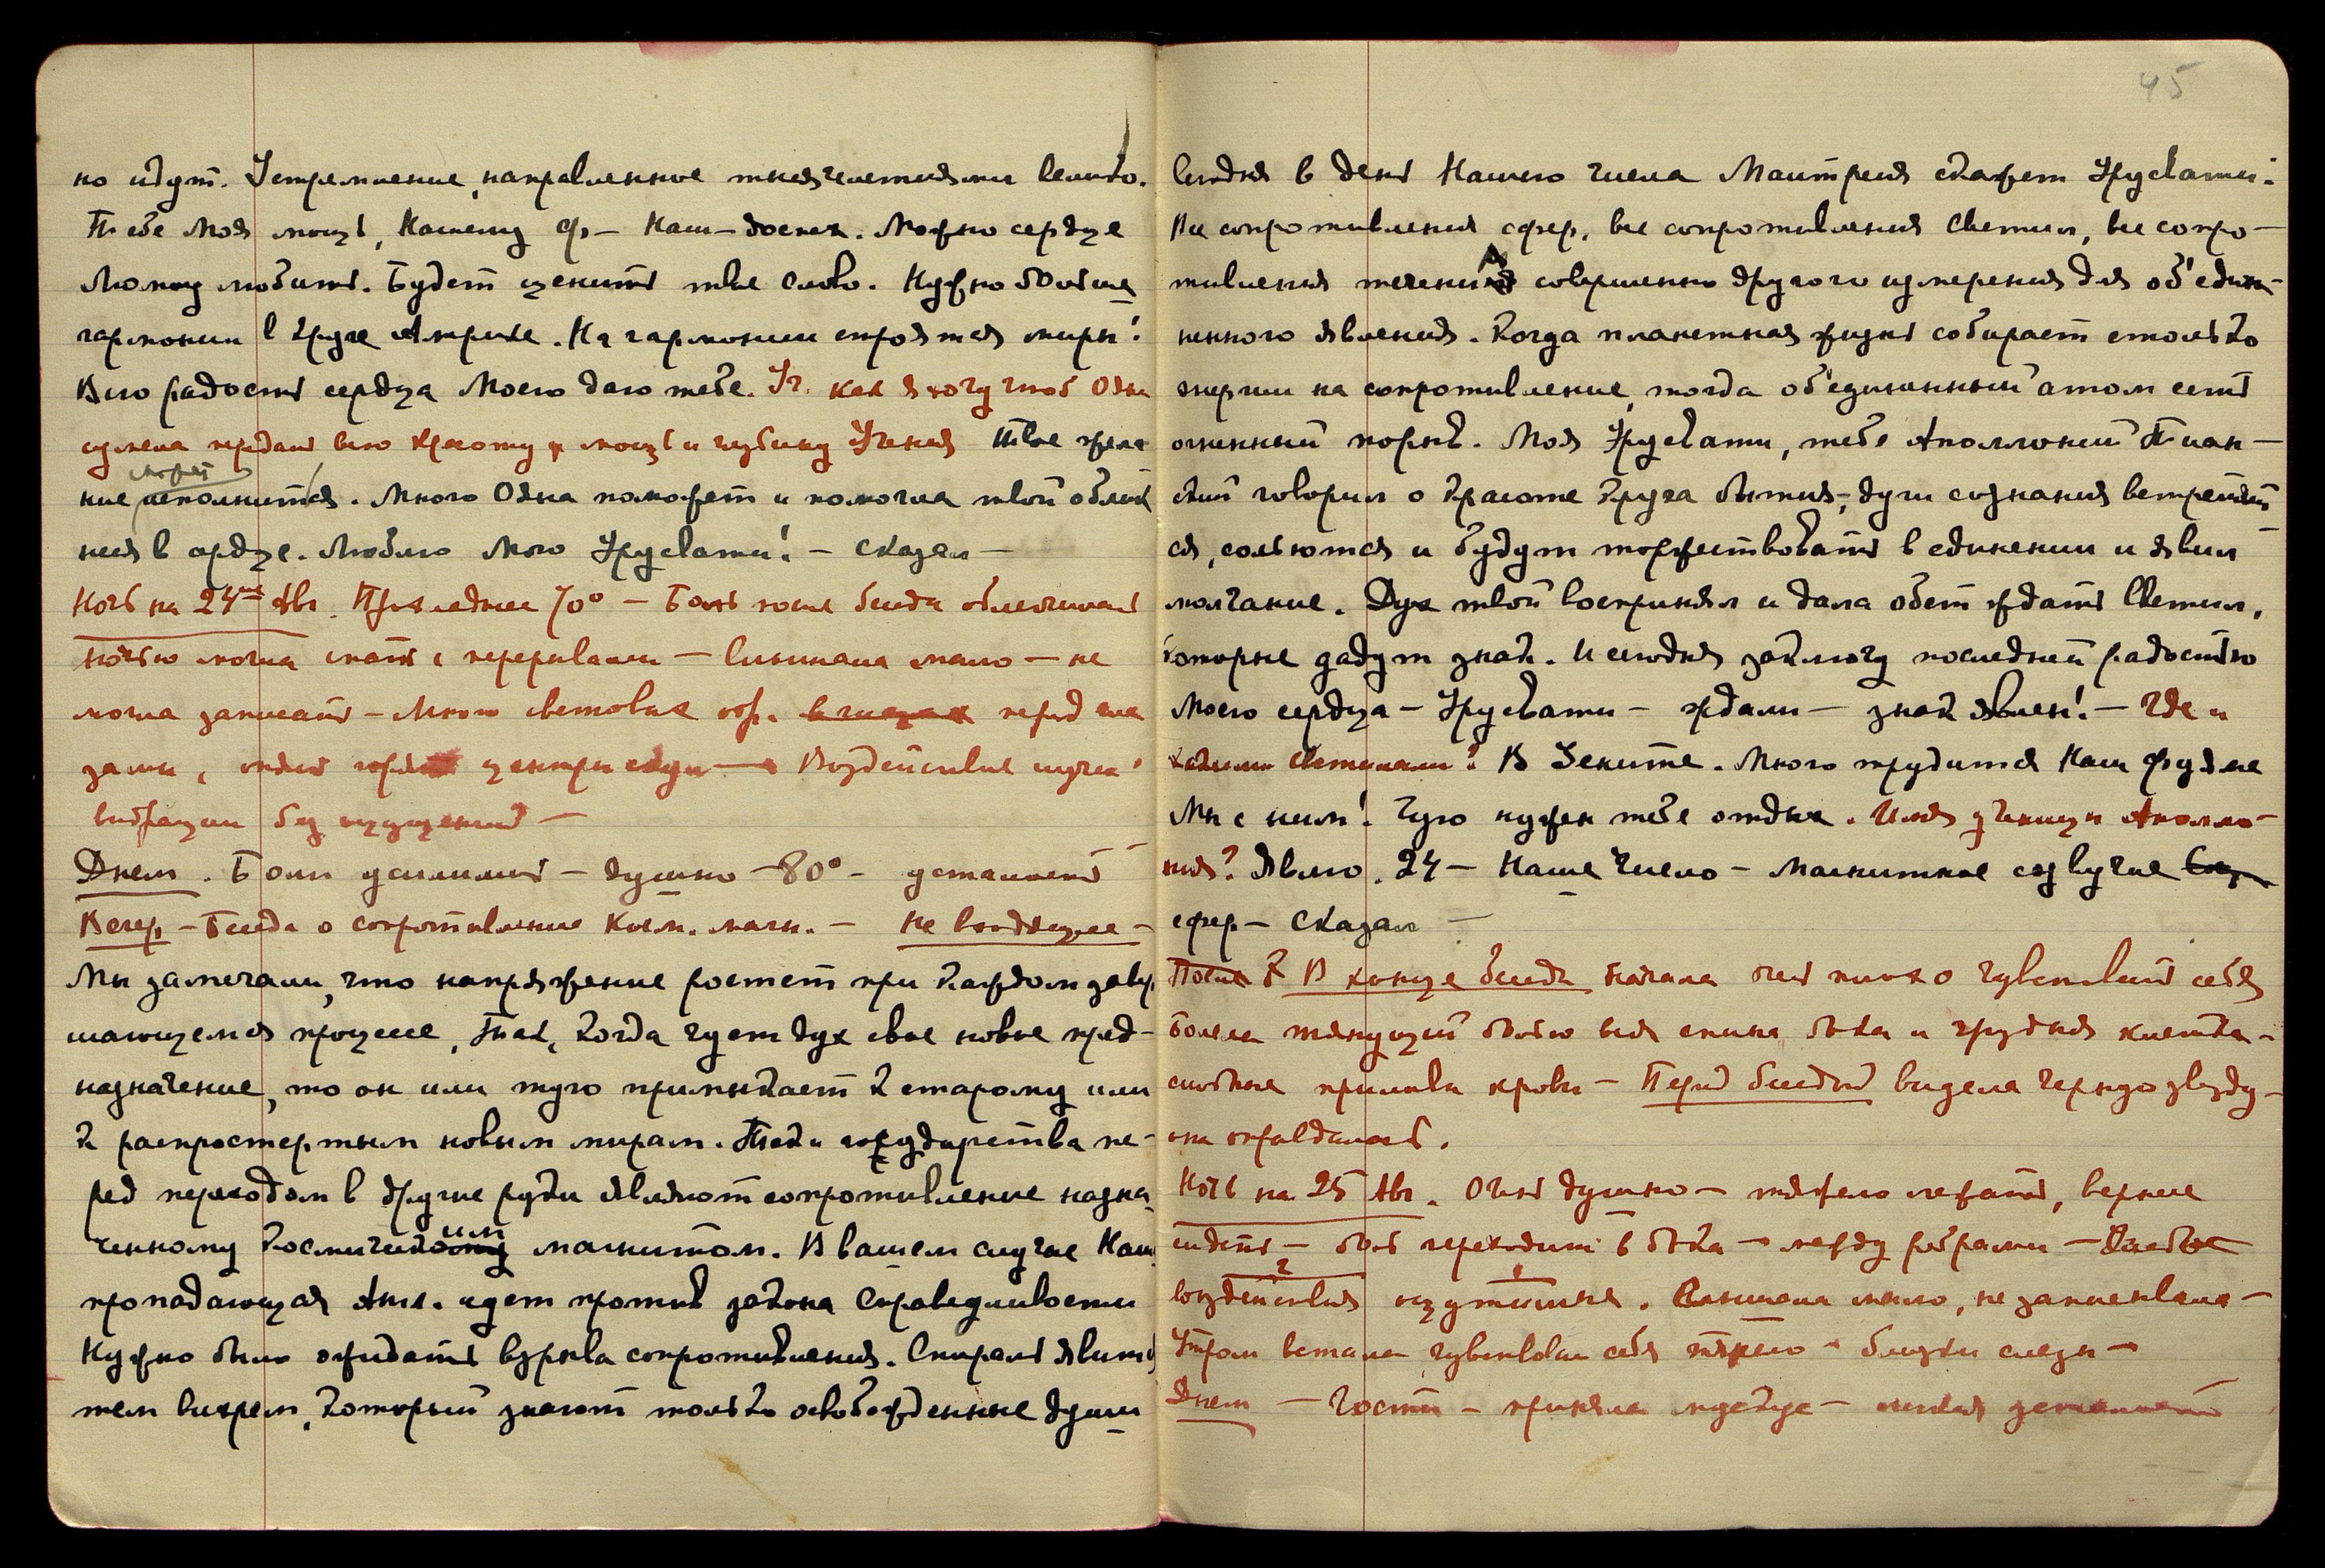 но идут. Устремление, направленное тысячелетиями велико.
Тебе Моя мощь, Нашему Ф.— Наш—доспех. Можно сердце
Люмоу любить. Будет ценить твое слово. Нужно больше
гармонии в круге Америке. На гармонии строятся миры!
Всю радость сердца Моего даю тебе. Ур. Как я хочу чтоб Одна
сумела передать всю красоту и мощь и глубину Учения Твое жела
ние может исполнится. Много Ояна поможет и помогла твой облик
нося в сердце. Люблю Мою Урусвати! — Сказал —
Ночь на 24ое Авг. 70° — Боль после беседы
Ночью могла спать с перерывами — слышала мало — не
могла записать — Много световых обр. в глазах перед гла
зами, центры Воздействие лучей
вибрации без ощущений —
Днем. Боли усилились — душно —80°— усталость
Вечер — Беседа о сопротивление Косм. магн. — Не входящее —
Мы замечали, что напряжение ростет при каждом завер
шающемся процессе, Так, когда чует дух свое новое пред—
назначение, то он или туго примыкает к старому или
к распростертым новым мирам. Так и государства пе—
ред переходом в другие руки являют сопротивление назна
ченному Космическим магнитом. В вашем случае Наш
пропадающая Англ. идет против закона Справедливости
Нужно было ожидать взрыва сопротивления. Спираль явит
тем вихрем, который знают только освобожденные души
45
Сегодня в день Нашего числа Маитрейя скажет Урусвати:
Все сопротивления сфер, все сопротивления светил, все сопро—
тивления течения совершенно другого измерения для об'един—
ненного явления. Когда планетная жизнь собирает столько
энергии на сопротивление, тогда об'единенный атом есть
огненный порыв. Моя Урусвати, тебе Аполлоний Тиан—
ский говорил о красоте круга бытия,—духи сознания встретят
ся, сольются и будут торжествовать в единении и явил
молчание. Дух твой воспринял и дала обет ждать светил,
которые дадут знак. И сегодня заключу последней радостью
Моего сердца — Урусвати — ждали — знак явлен! — Где и
какими светилами? В Зените. Много трудится Наш Фуяма
Мы с ним! Чую нужен тебе отдых. Имя ученицы Аполло—
ния? Явлю. 24 — Наше Число — магнитное созвучие
сфер — Сказал —
После В конце беседы начала очень плохо чувствовать себя
Болела тянущей болью вся спина бока и грудная клетка —
сильные приливы крови — Перед беседой видела черную звезду —
она оправдалась.
Ночь на 25 Авг. Очень душно — тяжело лежать, вернее
сидеть — боль переходит в бока — между ребрами —
воздействия ощутимые. Слышала мало, не записывала —
Утром встала чувствовала себя тяжело — близки слезы —
Днем — Гости — приняла